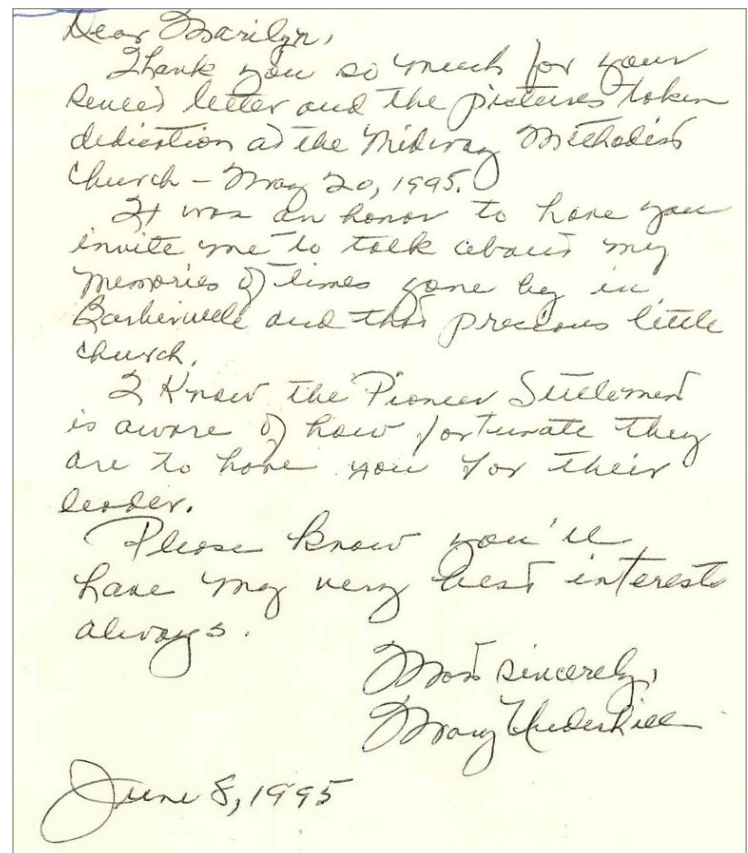 Dear Marilyn,
Thank you so much for your
recent letter and the pictures taken
dedication at the Midway Methodist
Church - May 20, 1995.
It was an honor to have you
invite me to talk about my
memories of times gone by in
Barberville and that precious little
church.
I know the Pioneer Settlement
is aware of how fortunate they
are to have you for their
leader.
Please know you'll
have my very best interests
always.
Most sincerely,
Mary Underhill
June 8, 1995